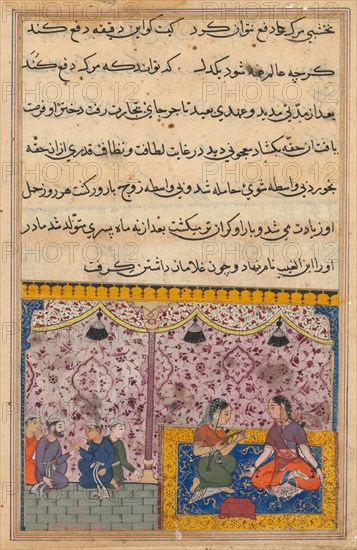 نخشبی مرک را دفع نتوان کرد کیت کو این دقیقه دفع کند
کرچه عالم همه شود یکدل که توانند که مرک دفع کنند
بعد از مدتی مدید و عهدی بعید تاجر جای تجارت رفت دختر او فرصت
یافت آن حقه بکشاد معجونی دید در غایت لطافت و نظافت قدری از ان حقه
بخورد بی واسطه شوی حامله شد و بی واسطه زوج بارور کشت هر روز حمل
او زیادت می شد و بار او کران تر می کشت بعد از نه ماه پسری متولد شد مادر
او را ابن الغیب نام نهاد و چون غلامان داشتن کرفت